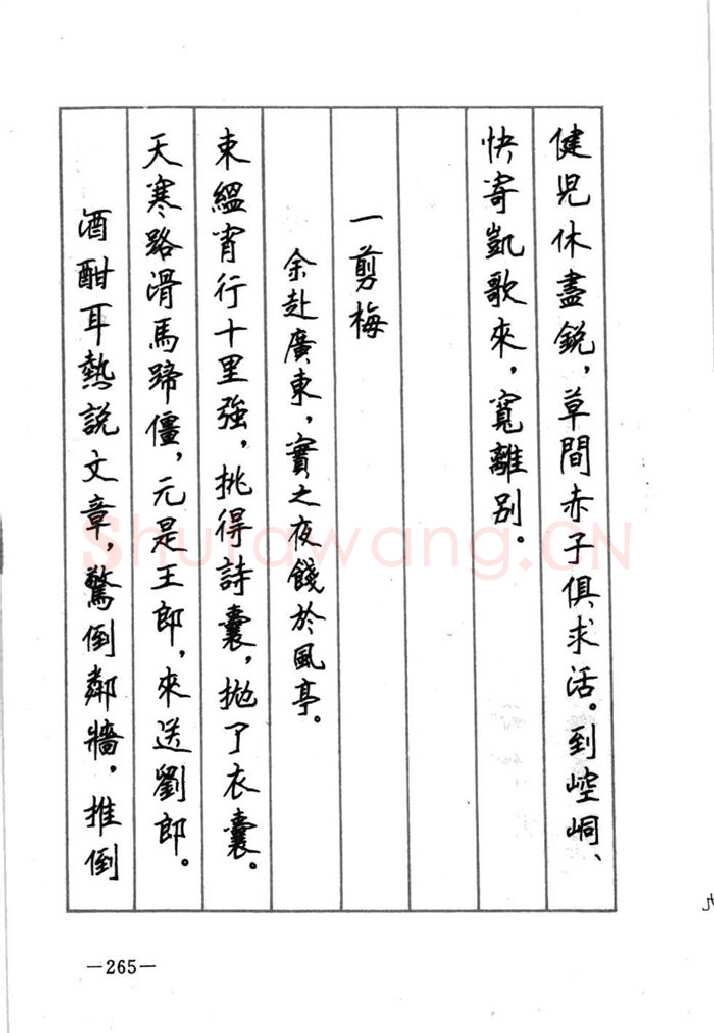 健兒休盡鋭，草間赤子俱求活。到崆峒、
快寄凱歌來，寬離别。
一剪梅
余赴廣東，實之夜餞於風亭。
束縕宵行十里強，挑得詩囊，抛了衣囊。
天寒路滑馬蹄僵，元是王郎，來送劉郎。
酒酣耳熱説文章，驚倒鄰牆，推倒
—265—
Shufawang.CN